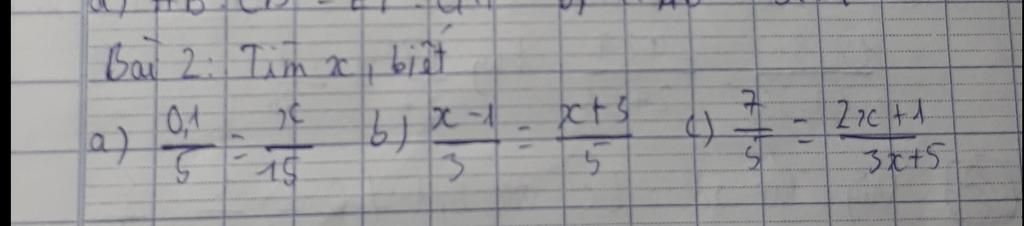 Bài 2: Tìm x, biết
a) 0,1/5 = x/15 b) x-1/3 = x+5/5 c) 7/5 = 2x+1/3x+5